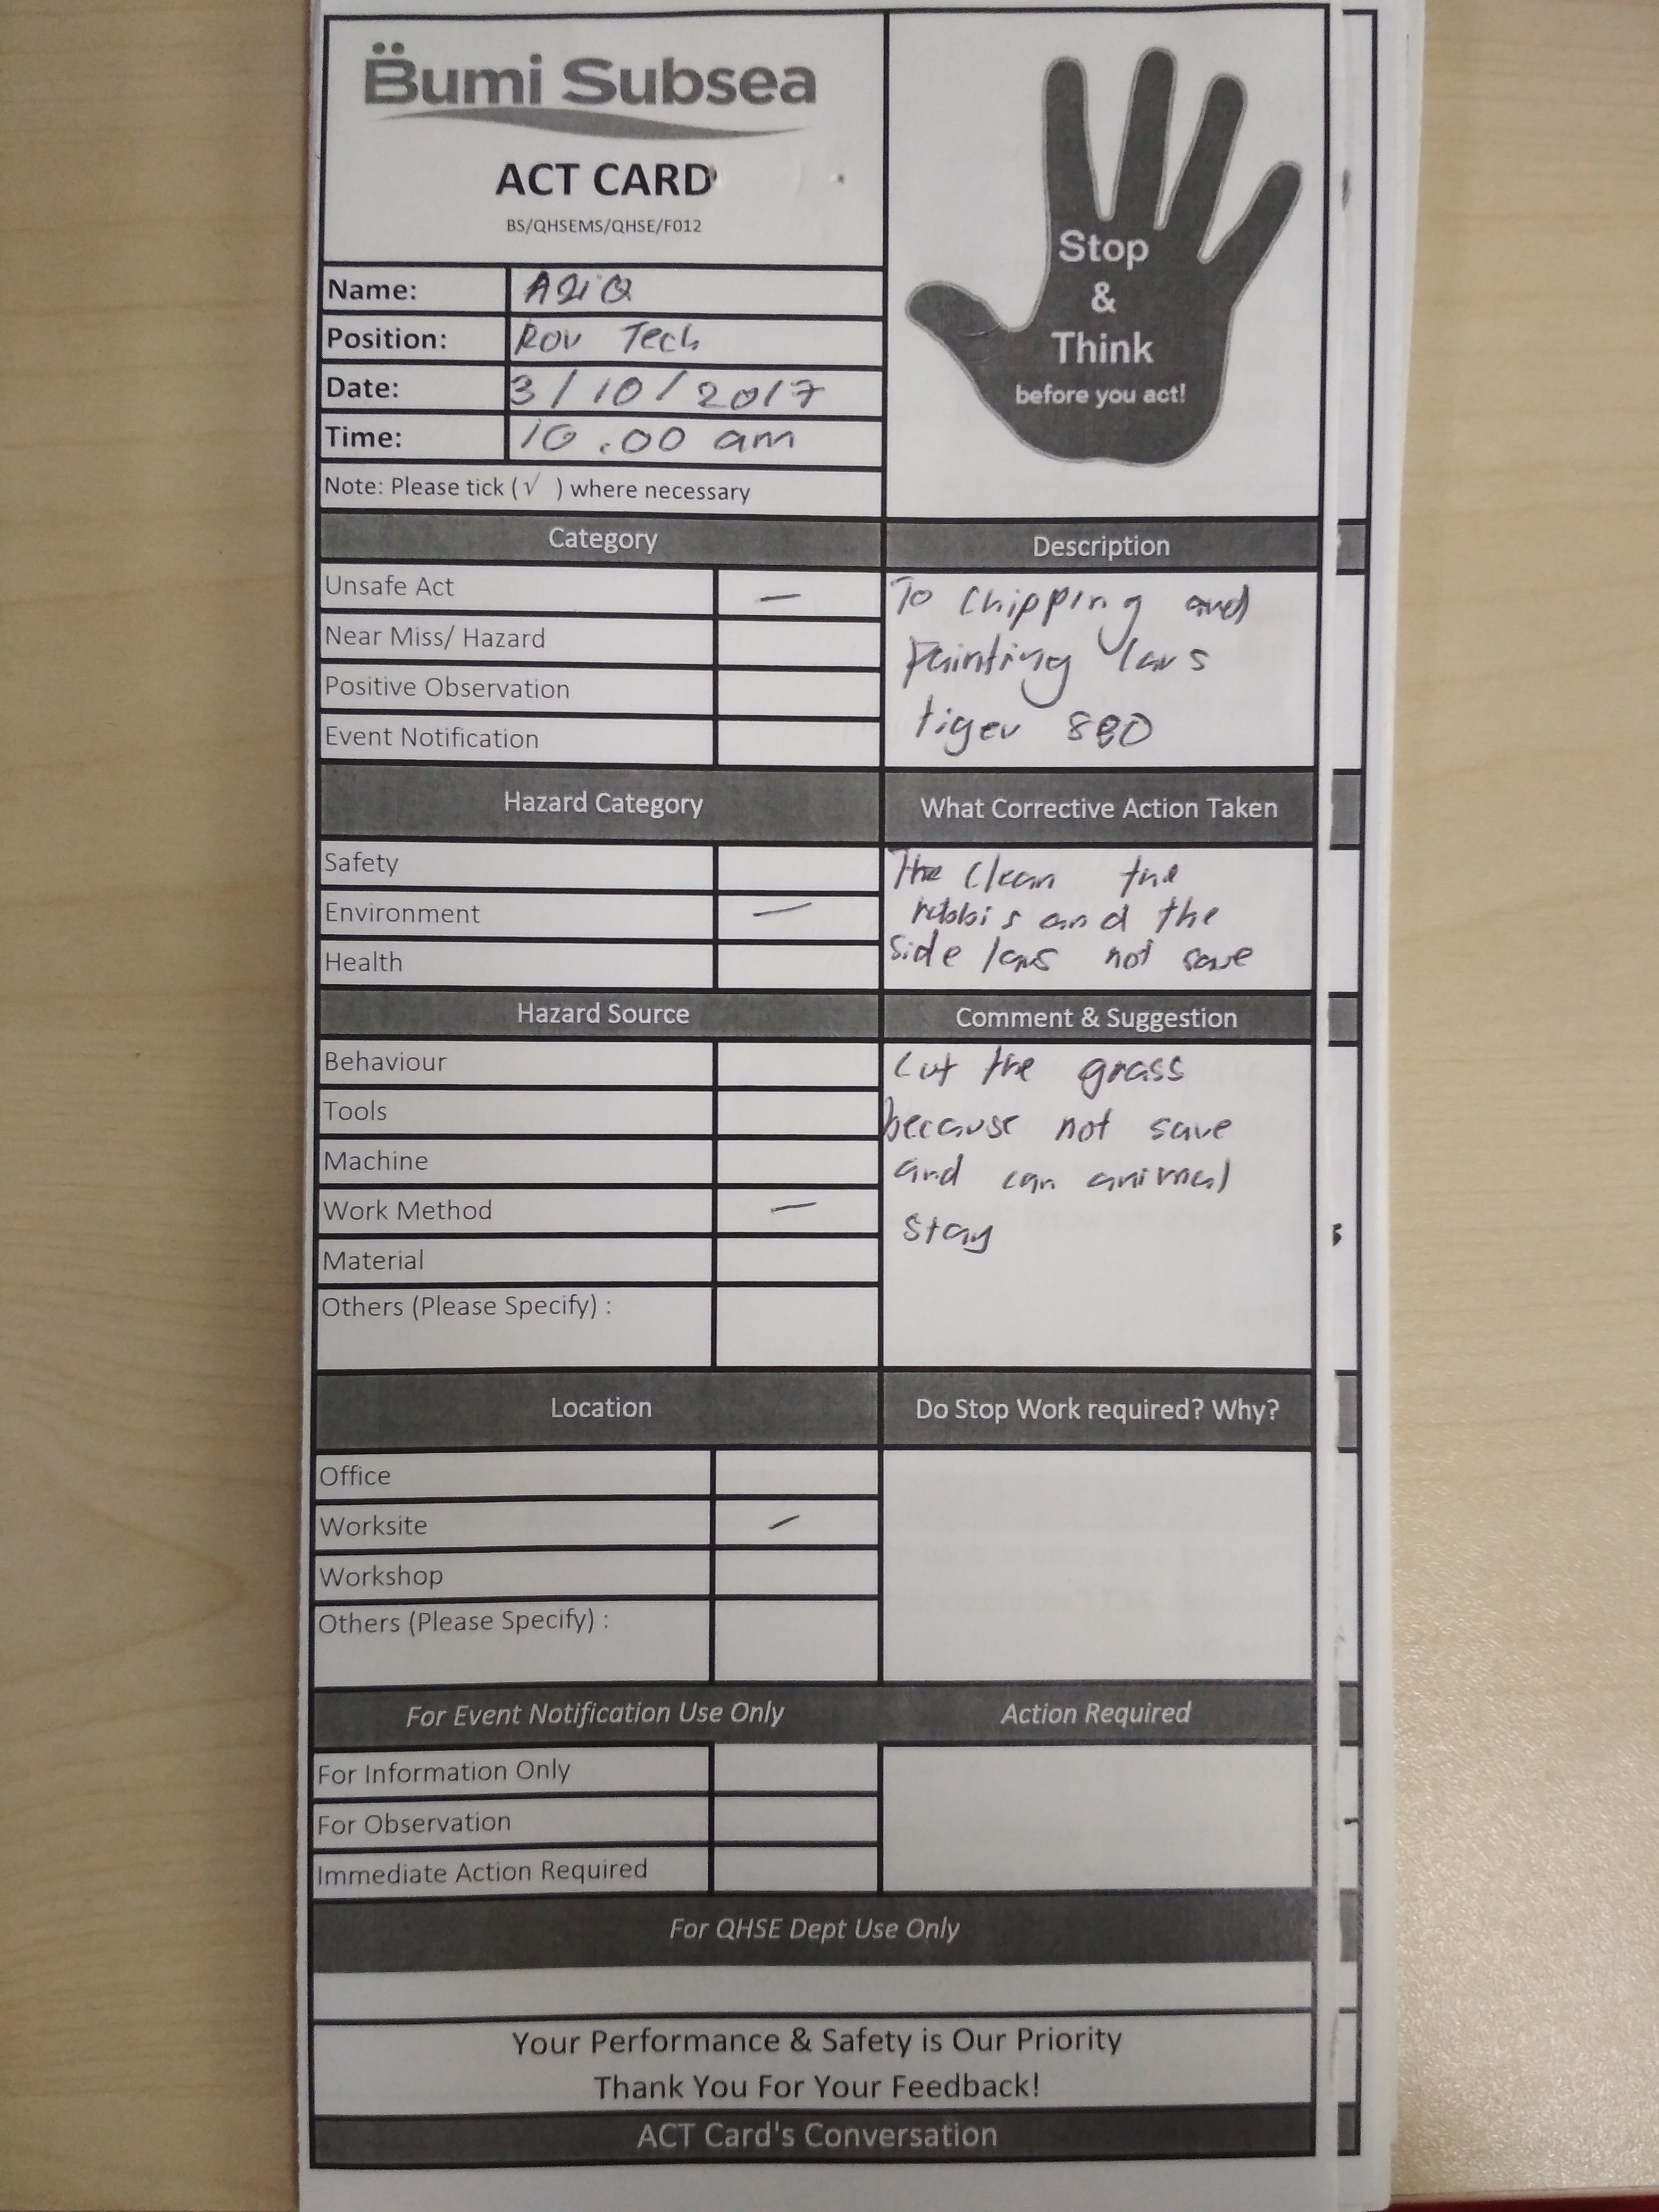 Bumi Subsea
ACT CARD
BS/QHSEMS/QHSE/F012
Stop
&
Think
before you act!
Name: AZiQ
Position: Rov Tech
Date: 3/10/2017
Time: 10.00 am
Note: Please tick (√ ) where necessary
Category
Unsafe Act —
Near Miss/ Hazard
Positive Observation
Event Notification
Description
To Chipping and
Painting lars
tiger
Hazard Category
Safety
Environment —
Health
What Corrective Action Taken
The Clean the
and the
side lars not save
Hazard Source
Behaviour
Tools
Machine
Work Method —
Material
Others (Please Specify) :
Comment & Suggestion
Cut the grass
because not save
and can animal
stay
Location
Office
Worksite
Workshop
Others (Please Specify) :
Do Stop Work required? Why?
For Event Notification Use Only
For Information Only
For Observation
Immediate Action Required
Action Required
For QHSE Dept Use Only
Your Performance & Safety is Our Priority
Thank You For Your Feedback!
ACT Card's Conversation